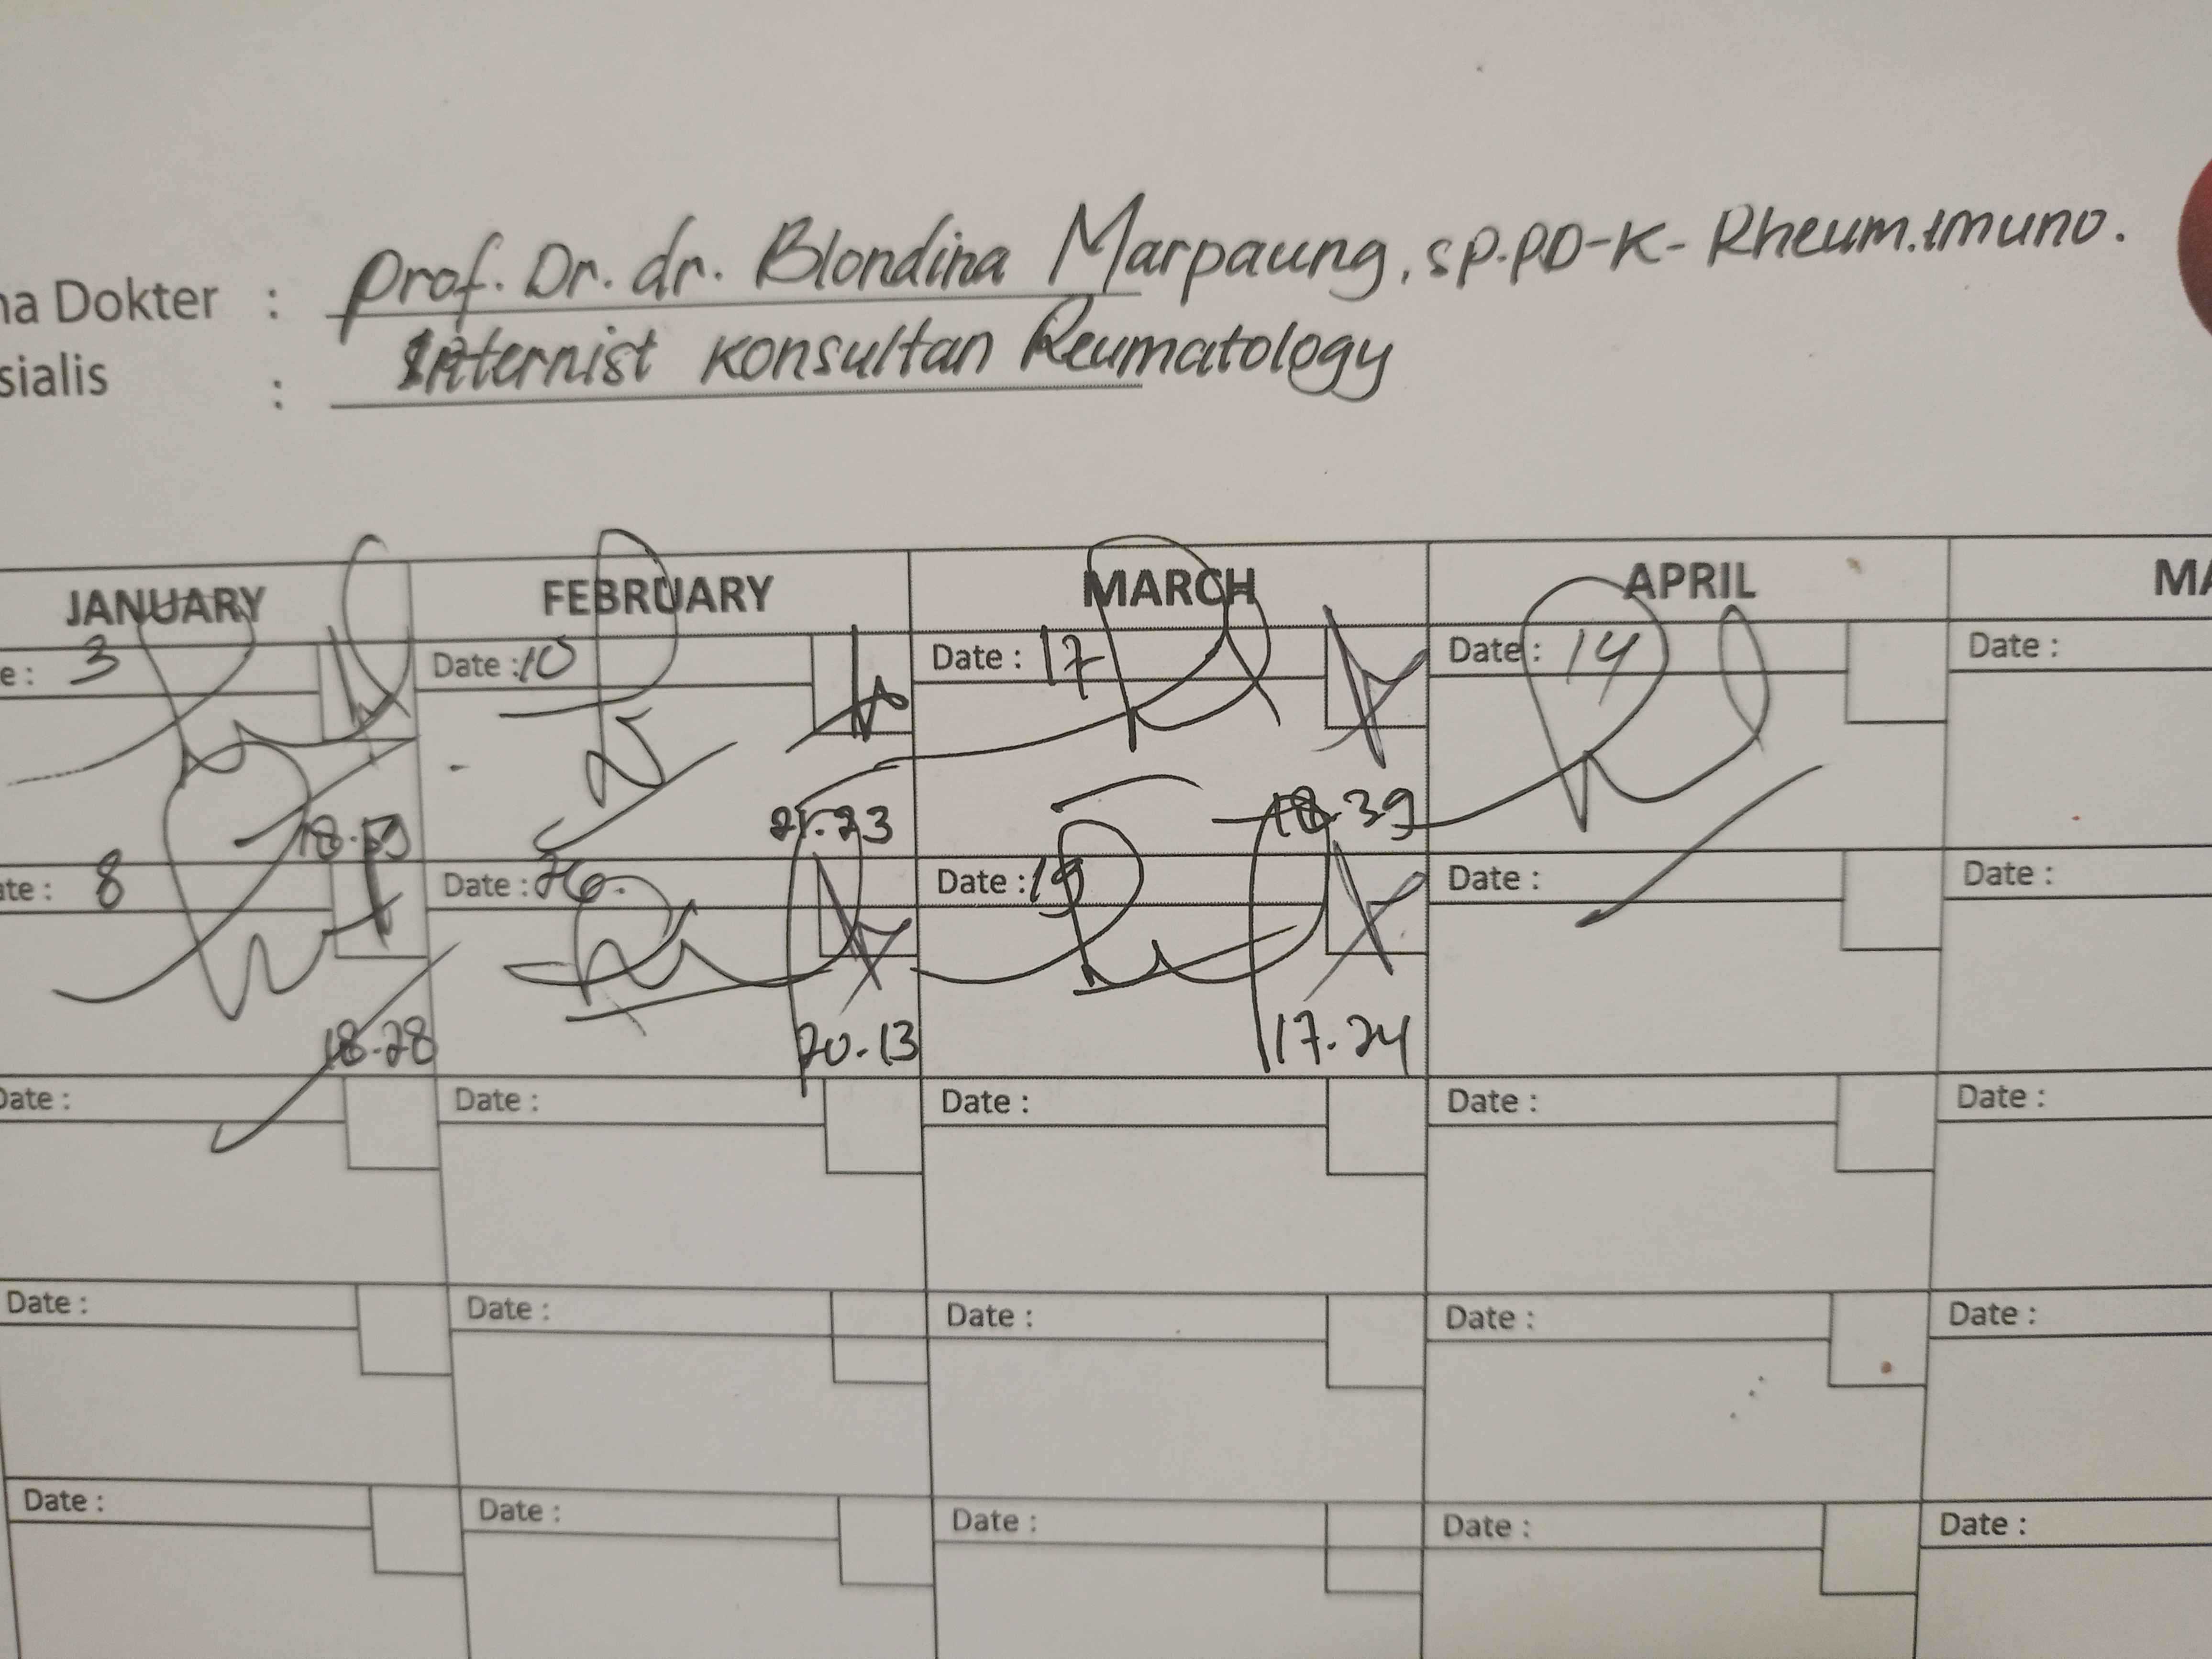 na Dokter : Prof. Dr. dr. Blondina Marpaung, SP.PD-K-Rheum.imuno.
sialis : Internist Konsultan Reumatology
JANUARY FEBRUARY MARCH APRIL MA
e : 3 Date : 10 Date : 17 Date : 14 Date :
21.23 18.39
ate : 8 Date : 26. Date : 19 Date : Date :
18.28 20.13 17.24
Date : Date : Date : Date : Date :
Date : Date : Date : Date : Date :
Date : Date : Date : Date : Date :